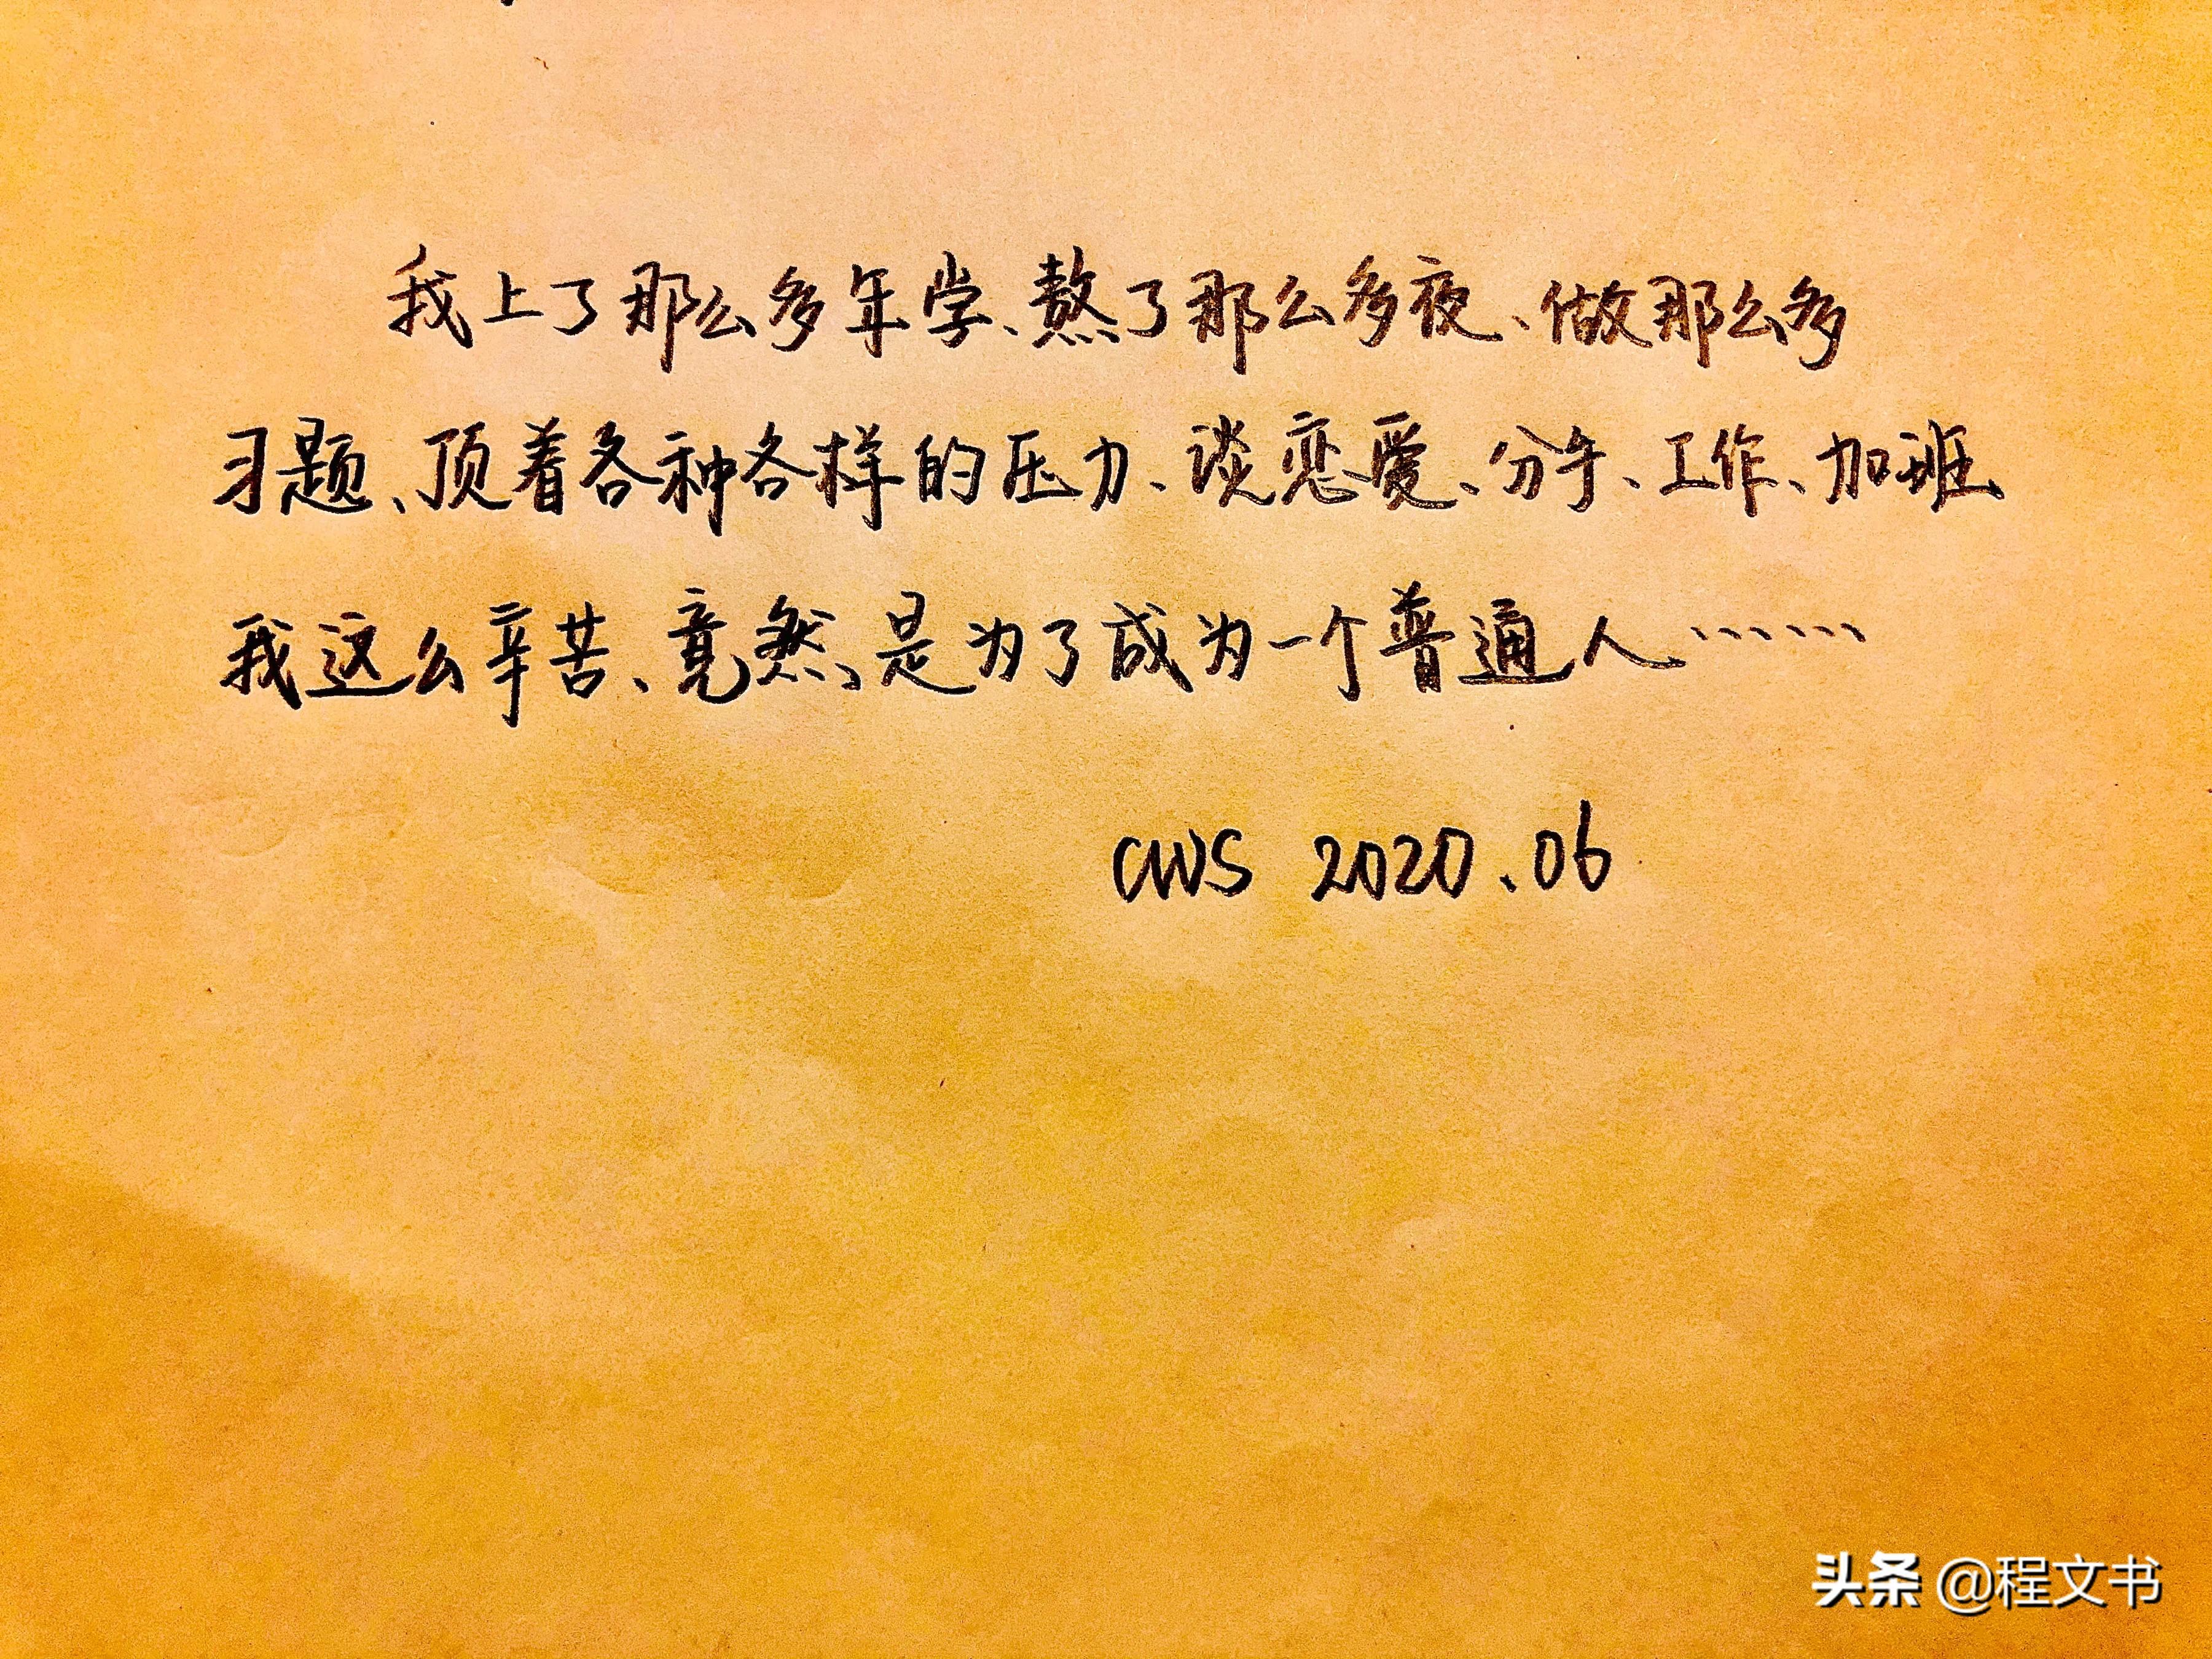 我上了那么多年学、熬了那么多夜、做那么多
习题、顶着各种各样的压力、谈恋爱、分手、工作、加班
我这么辛苦、竟然、是为了成为一个普通人……
CWS 2020.06
头条 @程文书